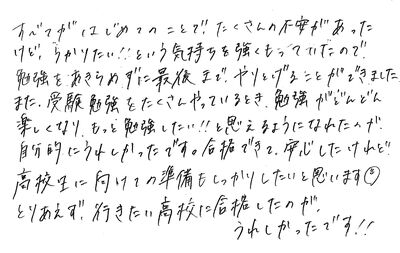 すべてがはじめてのことで、たくさんの不安があった
けど、うかりたい!!という気持ちを強くもっていたので
勉強をあきらめずに最後まで、やりとげることができました。
また、受験勉強をたくさんやっているとき、勉強がどんどん
楽しくなり、もっと勉強したい!!と思えるようになれたのが、
自分的にうれしかったです。合格できて、安心したけれど、
高校生に向けての準備もしっかりしたいと思います
とりあえず、行きたい高校に合格したのが、
うれしかったです!!